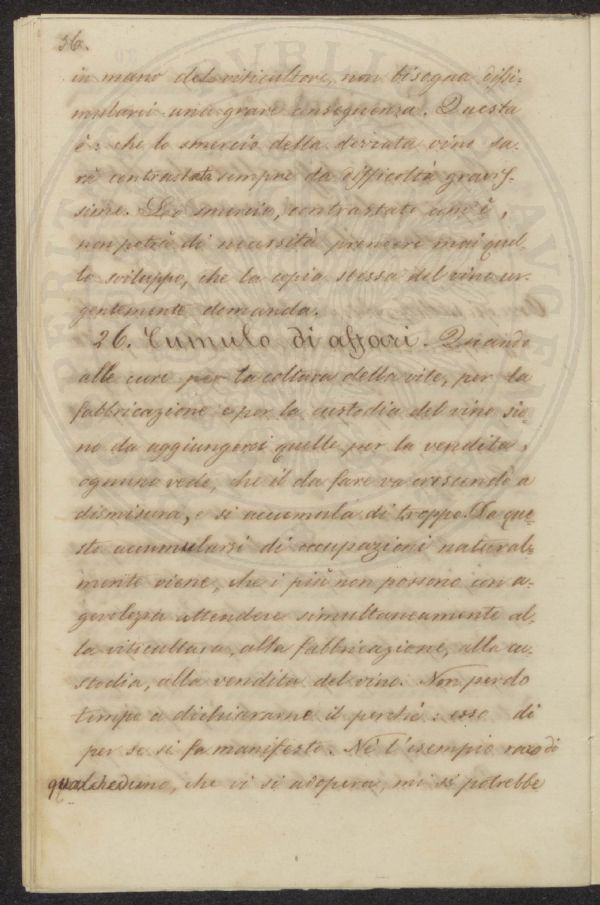 36.
in mano del viticultore, non bisogna dissi-
mularci una grave conseguenza. Questa
è: che lo smercio della derrata vino sa-
rà contrastata sempre da difficoltà gravis-
sime. Lo smercio, contrastato com'è,
non potrà di necessità prendere mai quel-
lo sviluppo, che la copia stessa del vino ur-
gentemente domanda.
26. Cumulo di affari. Quando
alle cure per la coltura della vite, per la
fabbricazione e per la custodia del vino sie-
no da aggiungersi quelle per la vendita,
ognuno vede, che il da fare va crescendo a
dismisura, e si accumula di troppo. Da que-
sto accumularsi di occupazioni natural-
mente viene, che i più non possono con a-
gevolezza attendere simultaneamente al-
la viticultura, alla fabbricazione, alla cu-
stodia, alla vendita del vino. Non perdo
tempo a dichiararne il perchè: esso di
per se si fa manifesto. Nè l'esempio raro di
qualcheduno, che vi si adopera, mi si potrebbe